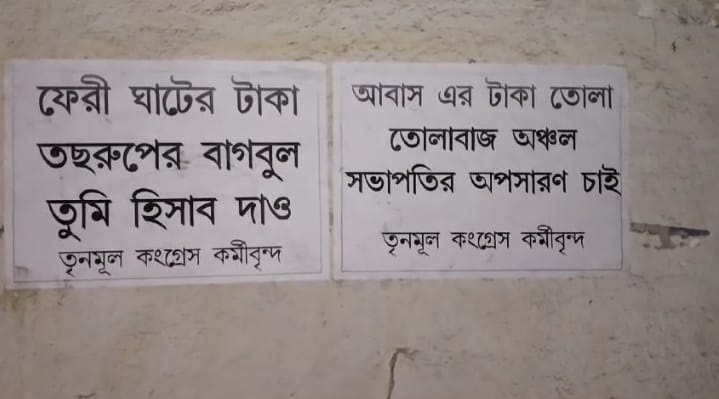 ফেরী ঘাটের টাকা
তছরুপের বাগবুল
তুমি হিসাব দাও
তৃনমূল কংগ্রেস কর্মীবৃন্দ
আবাস এর টাকা তোলা
তোলাবাজ অঞ্চল
সভাপতির অপসারণ চাই
তৃনমূল কংগ্রেস কর্মীবৃন্দ